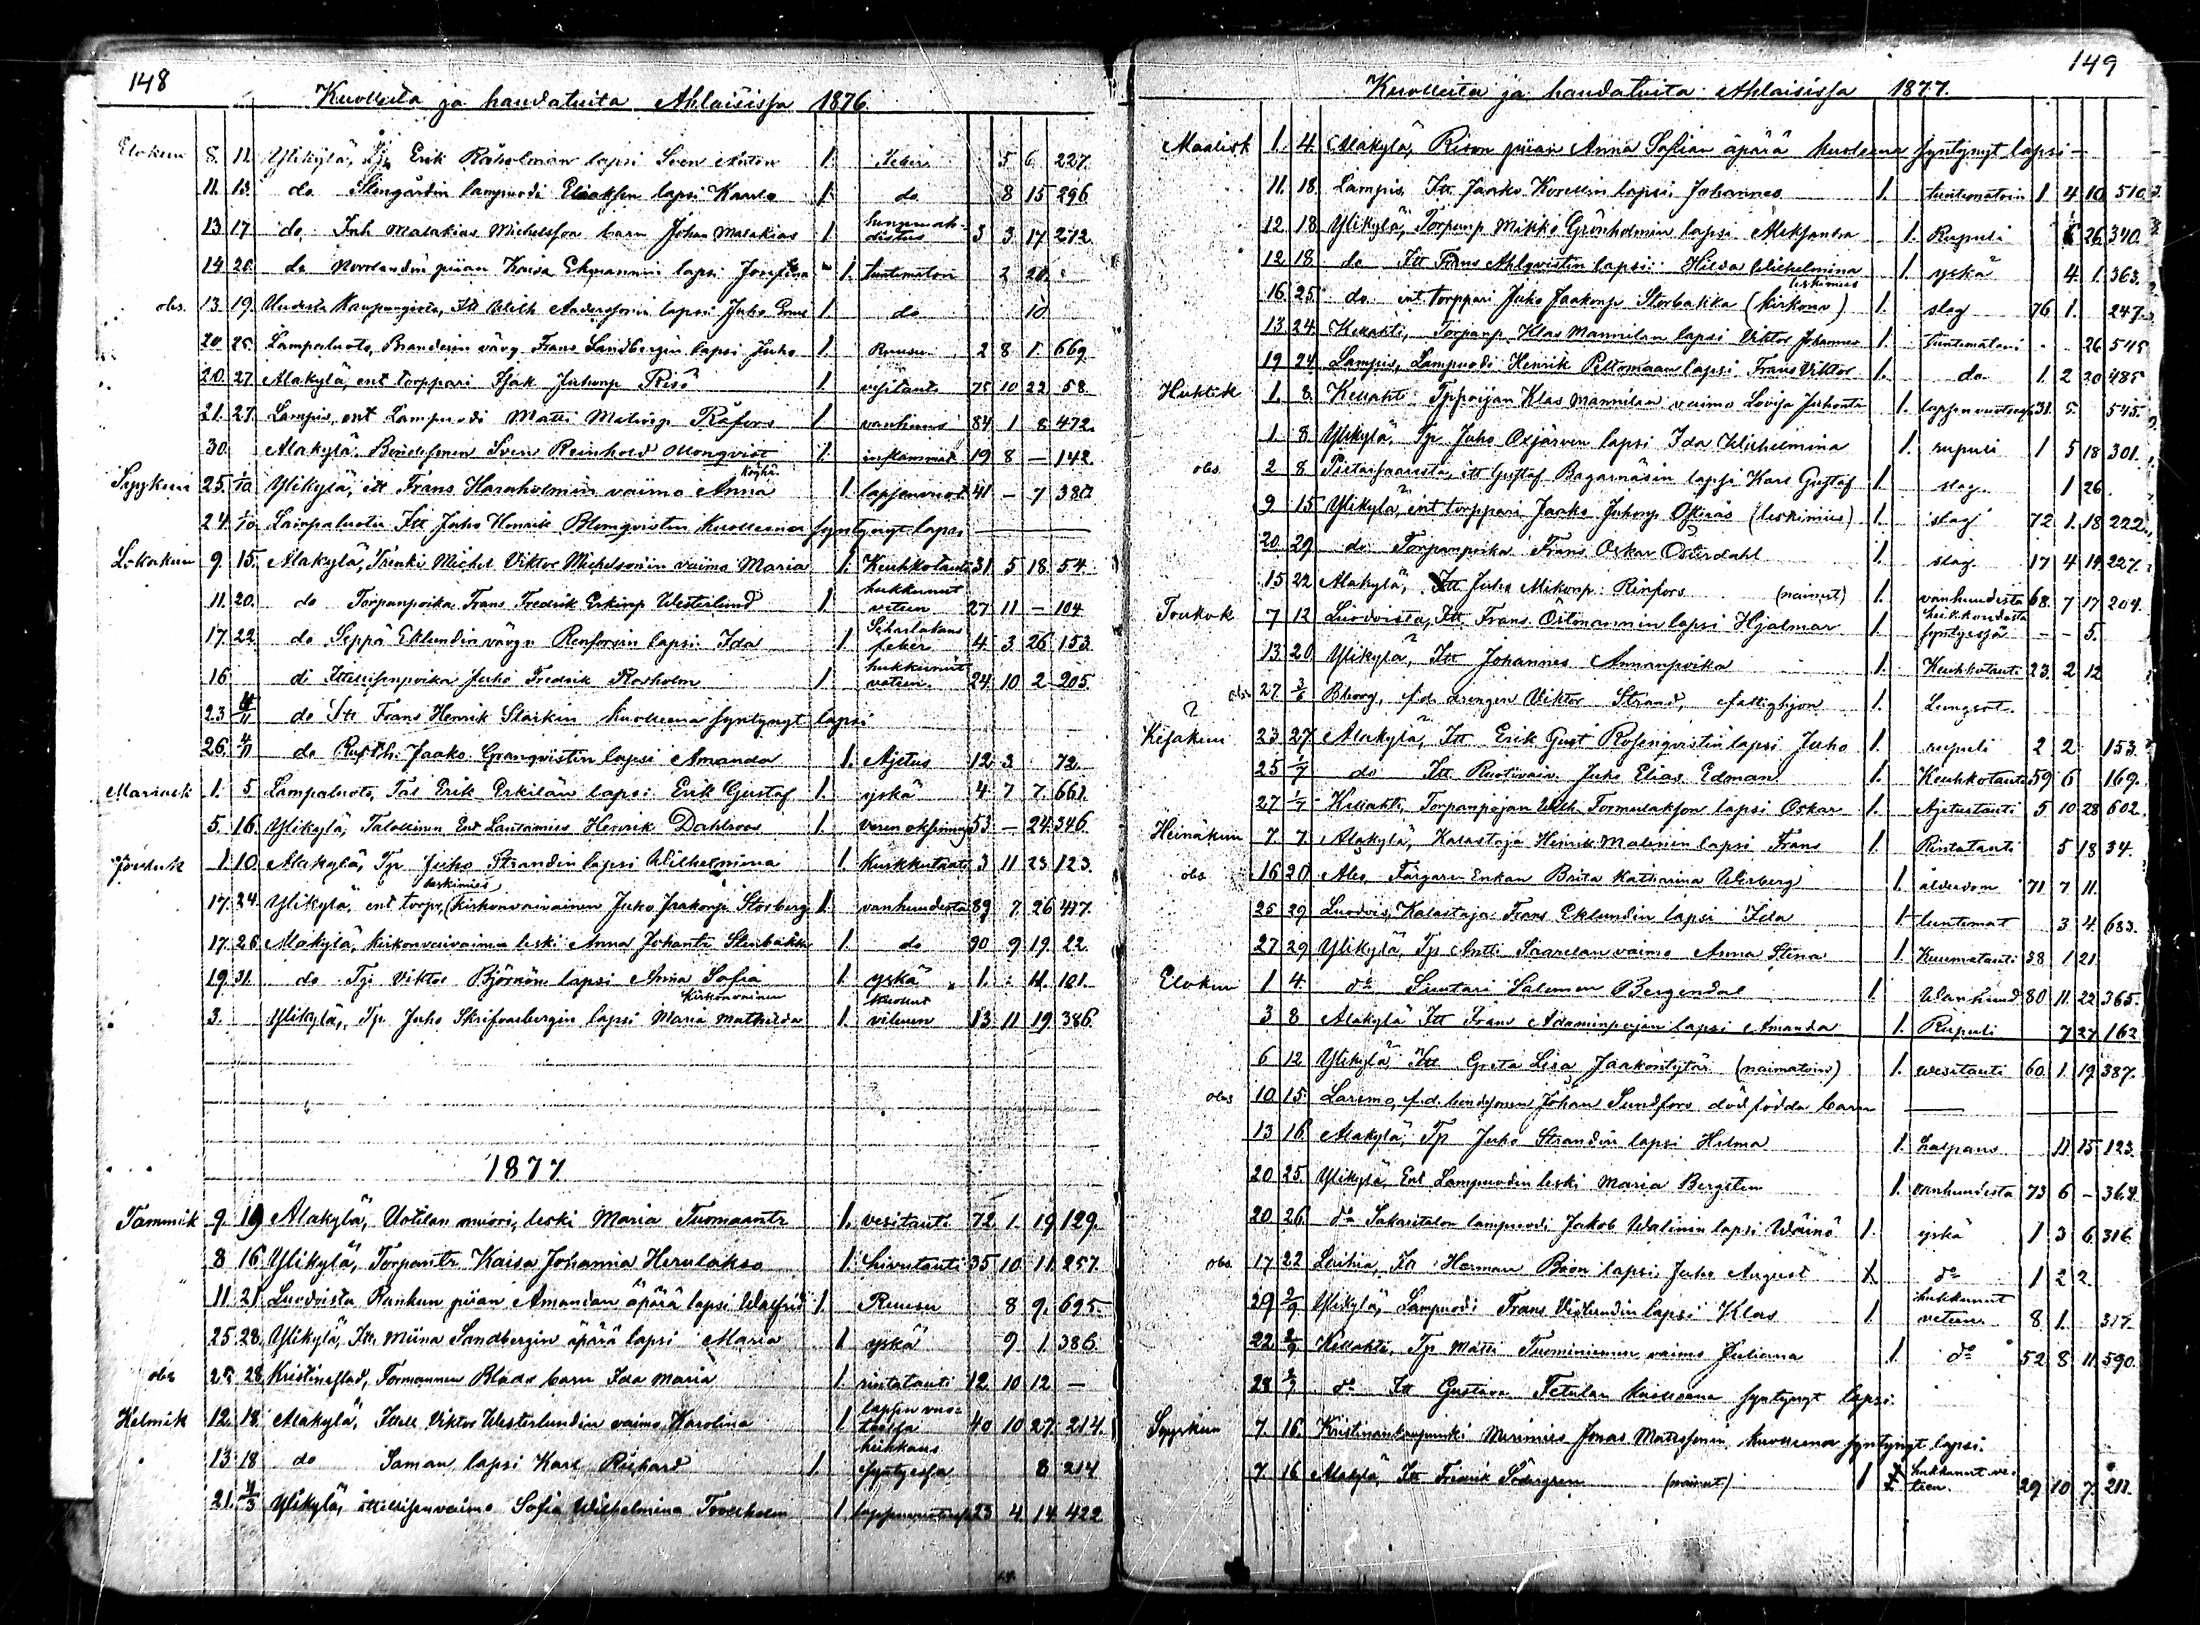 148
Kuolleita ja haudatuita Ahlaisissa 1876.
Elokuu 8. 11. Ylikylä, Erik Råholman lapsi Sven Anton 1. Feber 5 6. 227.
11. 13. do Stengårdin lampuodi Eliaksen lapsi Kaarlo 1. do 8 15 296
13 17 do Inh Malakias Michelsson barn Johan Malakias 1 3 3 17 272.
14 20. do Norrlundin piian Kaisa Ekmannin lapsi Josefina 1. tuntematon 2 20
obs. 13. 19. Uudesta Kaupungista, Itt Wilh Anderssonin lapsi Juho 1. do 10
20 25 Lampaluoto, Branderin vävy Frans Sandbergin lapsi Juho 1. Ruusu 2 8 1 669
20. 27 Alakylä, ent torppari Isak Juhonp Risö 1 75 10 22 58.
21. 27. Lampis, ent Lampuodi Matti Matinp Råfors 1 vanhuus 84 1 8 472.
30. Alakylä, Bondesonen Sven Reinhold 1. inflammat 19 8 — 142.
Syyskuu 25. 1/10 Ylikylä, itt Frans Haraholmin vaimo Anna 1 lapsenvuot 41 — 7 380
24. 1/10. Lampaluoto Itt Juho Henrik Blomqvistin kuolleena syntynyt lapsi
Lokakuu 9. 15. Alakylä, Trenki Michel Viktor Michelssonin vaimo Maria 1. Keuhkotauti 31 5 18. 54.
11. 20. do Torpanpoika Frans Fredrik Erkinp Westerlund 1 hukkunut veteen 27 11 — 104
17. 22. do Seppä Eklundin vävyn Renforsin lapsi Ida 1 Scharlakans feber 4. 3 26 153.
16 do Ittellisenpoika Juho Fredrik Roxholm 1. hukkunut veteen 24 10 2 205.
23 4/11 do Itt Frans Henrik Starkin kuolleena syntynyt lapsi
26. 4/11 do Jaako Granqvistin lapsi Amanda 1. Ajetus 12 3 72.
Marrask 1. 5 Lampaluoto, Tal Erik Erkilän lapsi Erik Gustaf 1. yskä 4 7 7. 661.
5. 16. Ylikylä, Talollinen Ent Lautamies Henrik Dahlroos 1. 53 — 24 346.
Jouluk 1 10. Alakylä, Tp Juho Strandin lapsi Wilhelmina 1. Kurkkutauti 3 11 23 123.
leskimies
17. 24. Ylikylä, ent torpr. (kirkonvaivainen Juho Jaakonp Storberg 1. vanhuudesta 89 7. 26 417.
17. 26 Alakylä, kirkonvaivainen leski Anna Johantr Stenbäkka 1. do 90 9 19. 22.
19. 31. do Tp Viktor Björnön lapsi Anna Sofia 1 yskä 1. 11. 101.
kirkonvainen
3. Ylikylä, Tp Juho Skrifvarbergin lapsi Maria Mathilda 1. kuollut viluun 13. 11 19. 386.
1877
Tammik 9. 19 Alakylä, Uotilan muori, leski Maria Tuomaantr 1. vesitauti 72. 1. 19 129.
8 16. Ylikylä, Torpantr Kaisa Johanna Herulakso 1. hivutauti 35 10 11. 257.
11. 21. Luodoista Runkun piian Amandan äpärä lapsi Walfrid 1. Ruusu 8 9. 695.
25. 28. Ylikylä, Itt Miina Sandbergin äpärä lapsi Maria 1 yskä 9 1 386.
obs 25 28 Kristinestad, Formannen Blads barn Ida Maria 1 rintatauti 12. 10 12 —
Helmik 12. 18. Alakylä, Ittell Viktor Westerlundin vaimo Karolina 1 lapsen vuoteessa 40 10 27. 214.
13. 18 do Saman lapsi Karl Richard 1. heikkous syntyessä 8 214
21. 4/3 Ylikylä, ittellisenvaimo Sofia Wilhelmina Toverholm 1 23 4. 14. 422.
149
Kuolleita ja haudatuita Ahlaisissa 1877.
Maalisk 1. 4. Alakylä, Rison piian Anna Sofian äpärä kuolleena syntynyt lapsi —
11. 18. Lampis, Itt Jaako Korellin lapsi Johannes 1. tuntematoin 1 4 10 510.
12 18 Ylikylä, Torpanp Mikko Grönholmin lapsi Aleksandra 1. Rupuli 26 340.
12 18 do Itt Frans Ahlqvistin lapsi Hilda Wilhelmina 1. yskä 4. 1. 363.
leskimies
16. 25. do ent torppari Juho Jaakonp Storbakka (kirkonv) 1. slag 76 1. 247.
13. 24. Kellahti, Torpanp Klas Mannilan lapsi Viktor Johannes 1. Tuntematoin 26 545
19 24 Lampis, Lampuodi Henrik Peltomaan lapsi Frans Viktor 1. do 1. 2 20 485
Huhtik 1. 8. Kellahti Tppoijan Klas Mannilan vaimo Lovisa Juhontr 1. 31 5. 545.
1 8. Ylikylä, Tp Juho Oxjärven lapsi Ida Wilhelmina 1. rupuli 1 5 18 301.
obs 2 8 Pietarsaaresta, itt Gustaf Bagarnäsin lapsi Karl Gustaf 1. slag. 1 26
9. 15 Ylikylä, ent torppari Jaako Juhonp (leskimies) 1. slag 72 1. 18 222.
20. 29 do Torpanpoika Frans Oskar Österdahl 1. slag. 17 4 14 227.
15 22 Alakylä, Itt Juho Mikonp Rinfors (nainut) 1. vanhuudesta 68. 7 17 204.
Toukok 7 12 Luodoista, Itt Frans Östmannin lapsi Hjalmar 1. heikkoudesta syntyessä — — 5.
13. 20 Ylikylä, Itt Johannes Annanpoika 1. Keuhkotauti 23. 2 12
obs 27 3/6 Bborg, f.d. drengen Viktor Strand, fattighjon 1. Lungsot.
Kesäkuu 23. 27 Alakylä, Itt Erik Gust Rosenqvistin lapsi Juho 1. rupuli 2 2 153.
25 1/7 do Itt Ruotivaiv. Juho Elias Edman 1. Keuhkotauti 59 6 169.
27 1/7 Kellahti, Torpanpojan Wilh Formulakson lapsi Oskar 1. Ajetustauti 5 10 28 602.
Heinäkuu 7. 7. Alakylä, Kalastaja Henrik Malinin lapsi Frans 1. Rintatauti 5 18 34.
obs 16 20 Abo, Färgare Enkan Brita Katharina Werberg 1. ålderdom 71 7 11.
25 29 Luodois, Kalastaja Frans Eklundin lapsi Ida 1. tuntemat 3 4. 683.
27 29 Ylikylä, Tp Antti Saarelan vaimo Anna Stina 1. Kuumetauti 38 1 21
Elokuu 1 4. do Suutari Salomon Bergendal 1. Wanhuud 80 11. 22 365.
3 8 Alakylä Itt Frans Adaminpojan lapsi Amanda 1. Rupuli 7 27 162
6 12 Ylikylä Itt Greta Lisa Jaakontytär (naimatoin) 1. vesitauti 60. 1. 19 387.
obs 10 15. f.d. bondsonen Johan Sundfors död födda barn
13 16 Alakylä, Tp Juho Strandin lapsi Hilma 1. halpaus 11 15 123.
20 25. Ylikylä, Ent Lampuodin leski Maria Bergsten 1. vanhuudesta 73 6 — 364.
20 26 do lampuodi Jakob Walinin lapsi Wäinö 1. yskä 1 3 6. 316.
obs. 17 22 Laihia, Itt Herman lapsi Juho August do 1 2 2.
29 2/9 Ylikylä, Lampuodi Frans Vidlundin lapsi Klas 1 hukkunut veteen 8 1. 317.
22 2/9 Kellahti, Tp Matti Tuominiemen vaimo Juliana 1 do 52 8 11. 590.
28 do Itt Gustava Tetulan kuolleena syntynyt lapsi.
Syyskuu 7. 16. Kristinankaupunki Merimies Jonas Matssonin kuolleena syntynyt lapsi.
7. 16 Alakylä, Itt Fredrik Södergren (nainut) 1 hukkunut veteen. 29 10 7. 211.